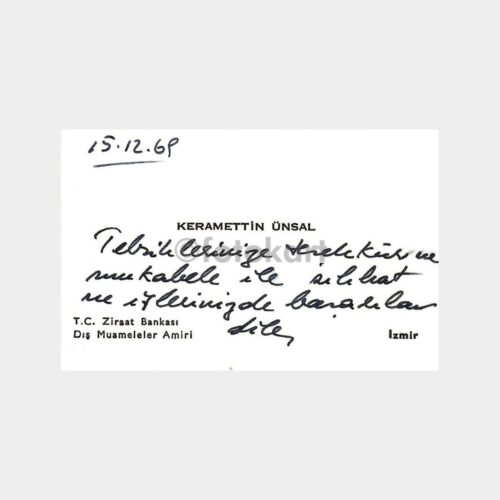 15.12.69
KERAMETTİN ÜNSAL
Tebriklerinize teşekkür ve
mukabele ile sıhhat
ve işlerinizde başarılar
diler
T.C. Ziraat Bankası
Dış Muameleler Amiri
İzmir
©fotokart